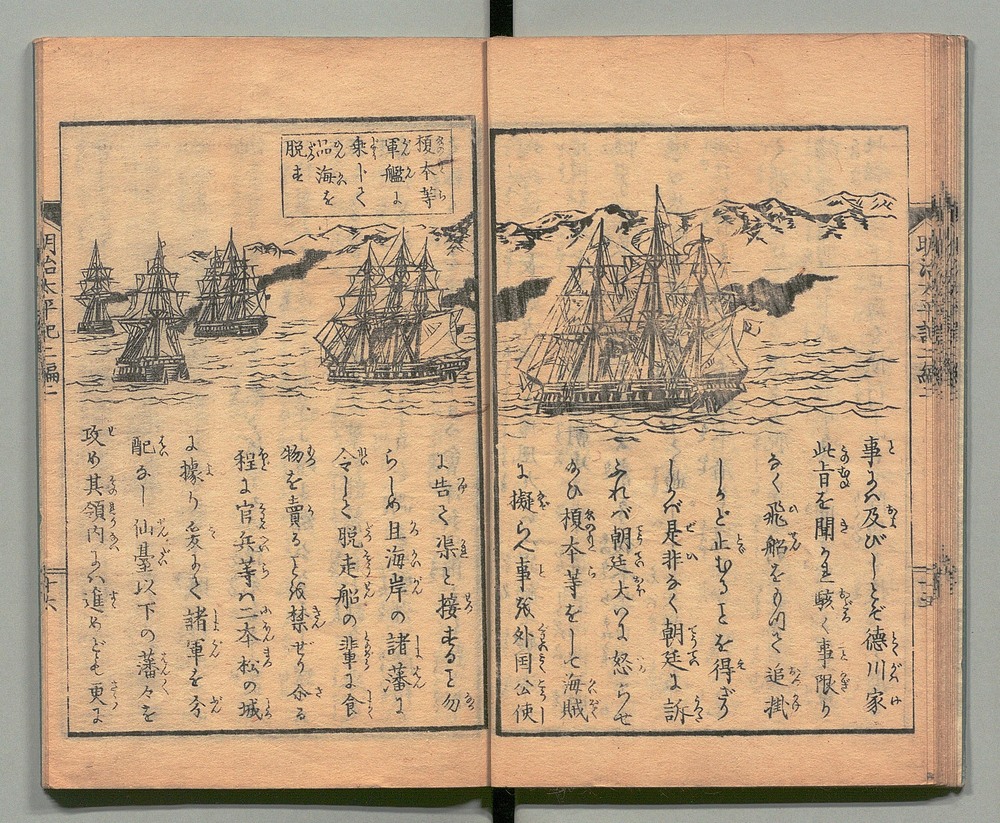 事には及びしとぞ徳川家
此旨を聞き駭く事限り
なく飛船をもつて追掛
しかど止むることを得ざり
しかば是非なく朝廷に訴
ふれば朝廷大いに怒らせ
給ひ榎本等をして海賊
に擬らへ事を外国公使
榎本等
軍艦に
乗じて
品海を
脱す
に告て渠と接することを勿
らしめ且海岸の諸藩に
令して脱走船の輩に食
物を賣ることを禁ぜり
程に官兵等は二本松の城
に據り爰にて諸軍を分
配なし仙臺以下の藩々を
攻め其領内には進めども更に
明治太平記二編